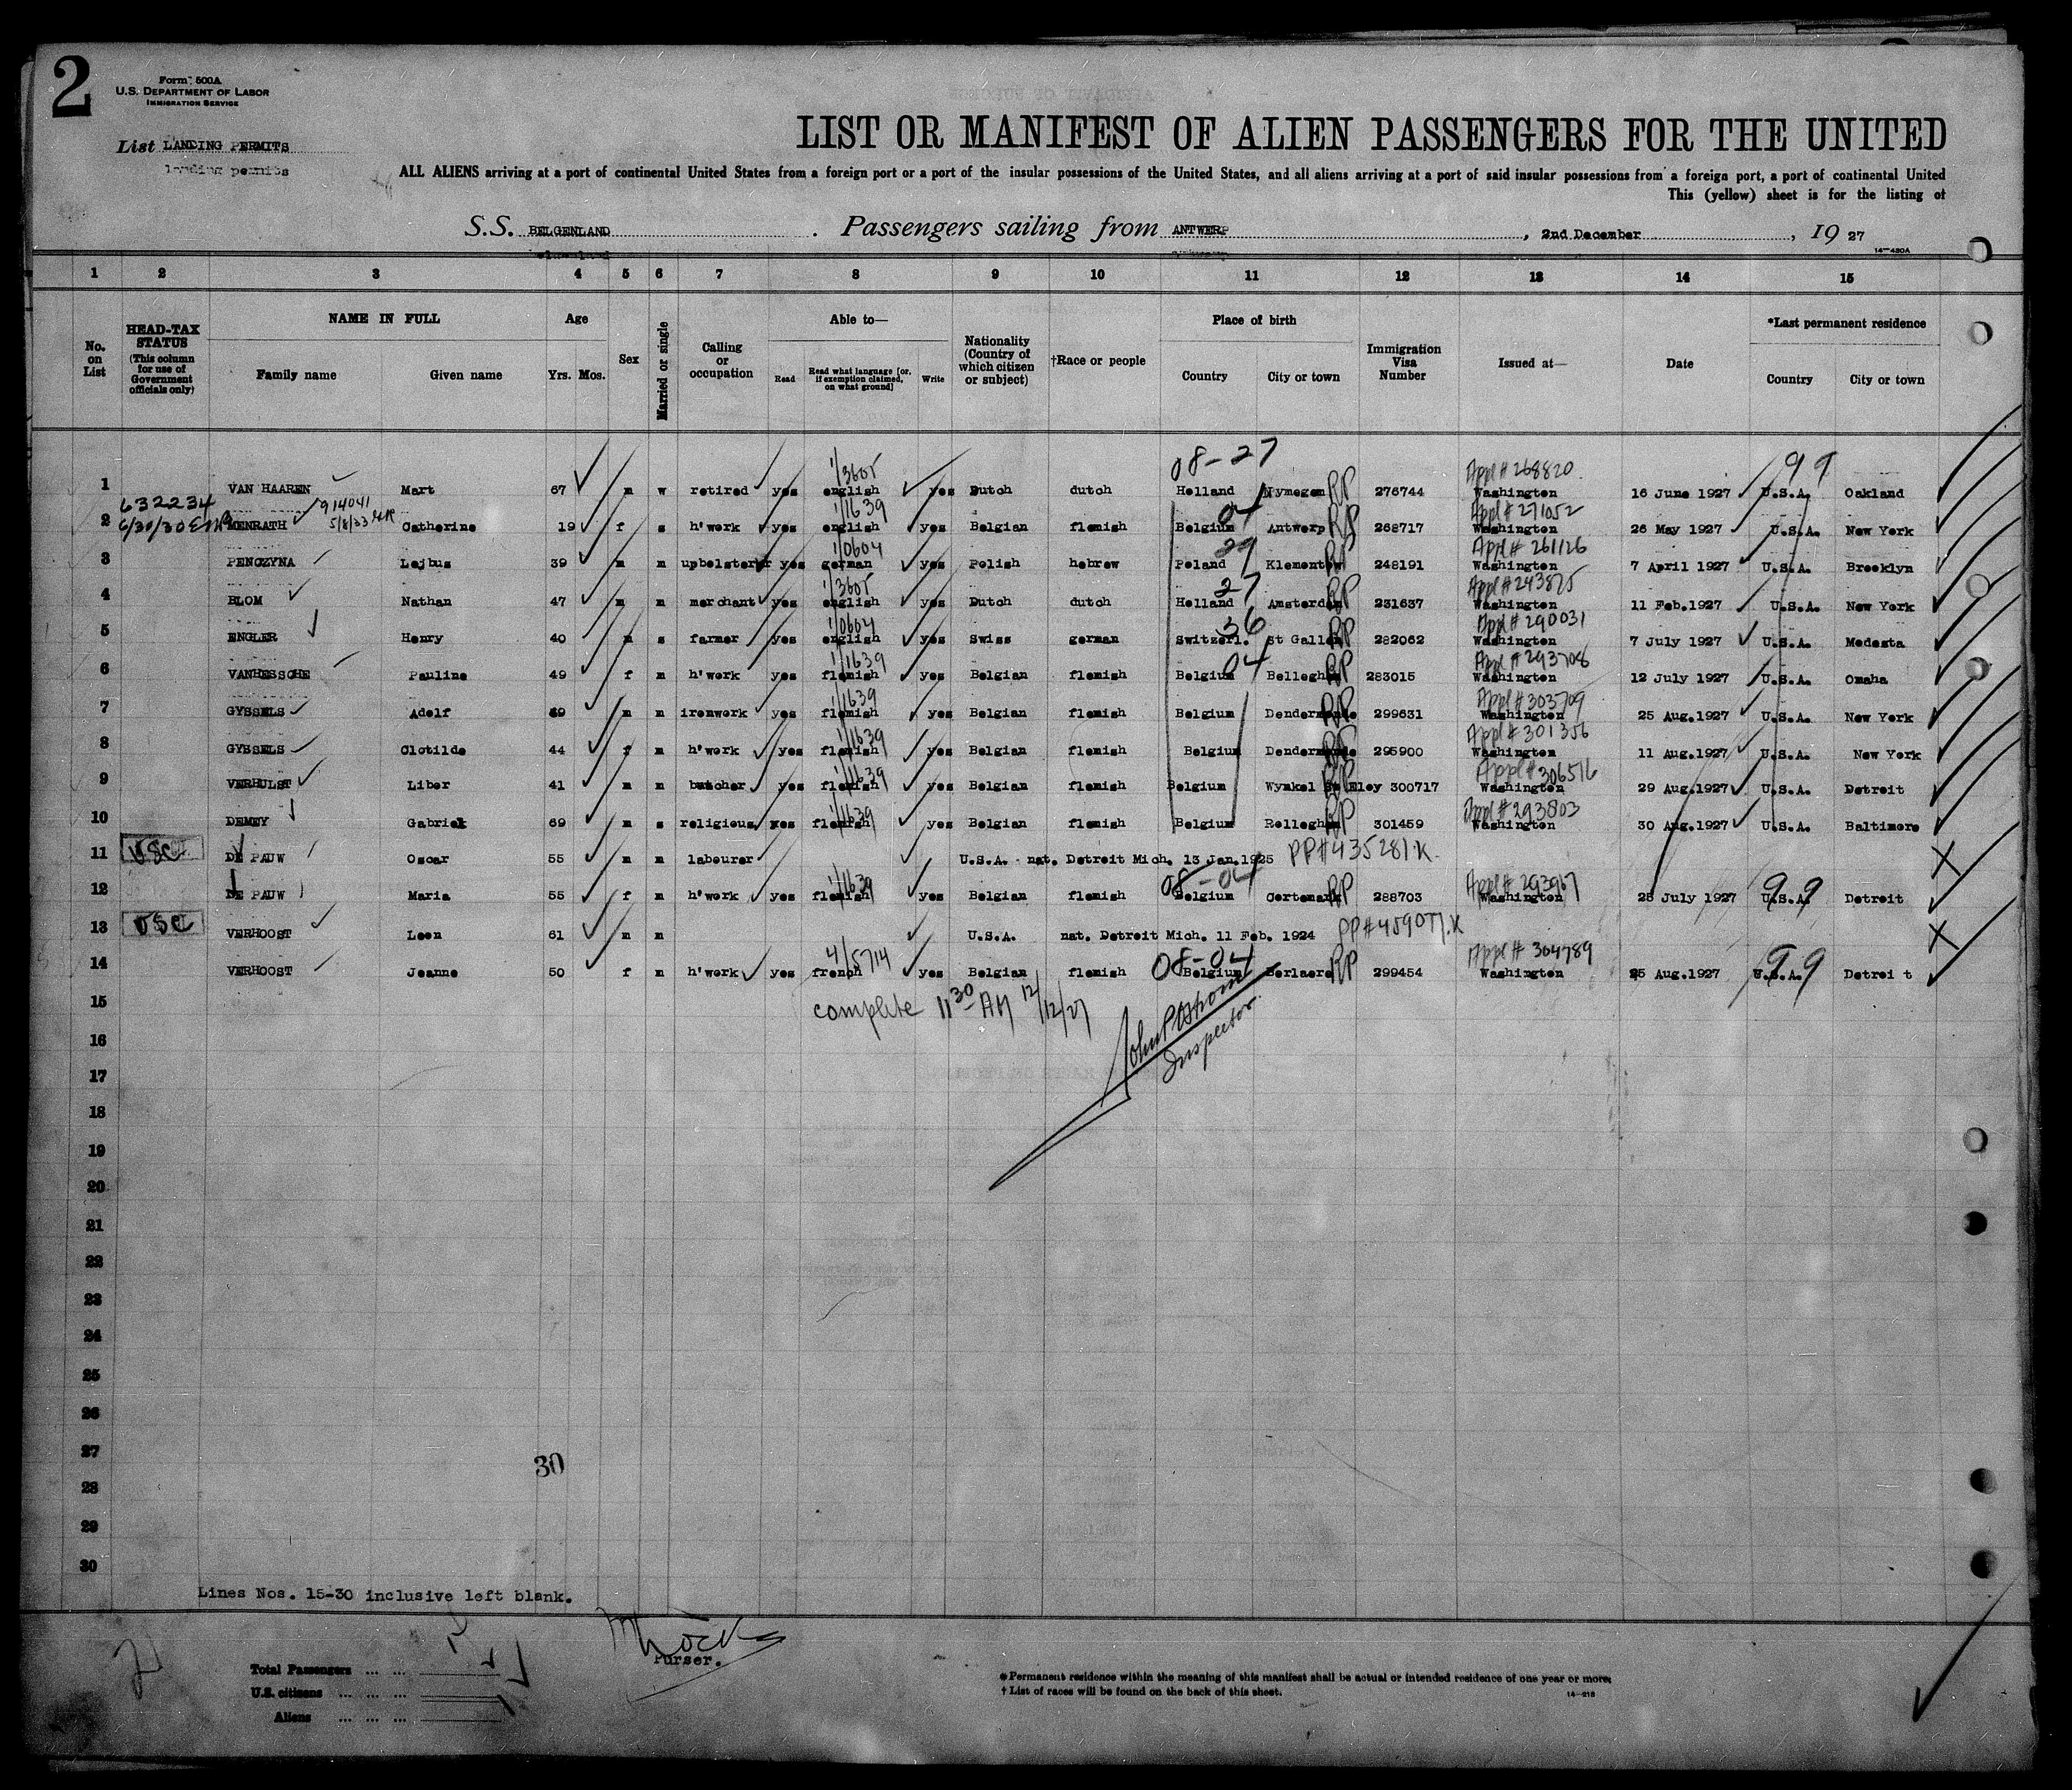 2
Form 500A
U.S. DEPARTMENT OF LABOR
IMMIGRATION SERVICE
List LANDING PERMITS
landing permits
LIST OR MANIFEST OF ALIEN PASSENGERS FOR THE UNITED
ALL ALIENS arriving at a port of continental United States from a foreign port or a port of the insular possessions of the United States, and all aliens arriving at a port of said insular possessions from a foreign port, a port of continental United
This (yellow) sheet is for the listing of
S.S. BELGENLAND . Passengers sailing from ANTWERP , 2nd December , 19 27
14—480A
1 2 3 4 5 6 7 8 9 10 11 12 13 14 15
No. on List
HEAD-TAX STATUS (This column for use of Government officials only)
NAME IN FULL Family name Given name
Age Yrs. Mos.
Sex
Married or single
Calling or occupation
Able to— Read Read what language [or, if exemption claimed, on what ground] Write
Nationality (Country of which citizen or subject)
†Race or people
Place of birth Country City or town
Immigration Visa Number
Issued at—
Date
*Last permanent residence Country City or town
08-27 1/3605 Appl # 268820 99
1 VAN HAAREN Mart 67 m w retired yes english yes Dutch dutch Holland Nymegen RP 276744 Washington 16 June 1927 U.S.A. Oakland
632234 914041 1/1639 04 Appl # 271052
2 6/30/30 5/8/33 MENRATH Catherine 19 f s h'work yes english yes Belgian flemish Belgium Antwerp RP 268717 Washington 26 May 1927 U.S.A. New York
1/0604 29 Appl # 261126
3 PENCZYNA Lejbus 39 m m upholsterer yes german yes Polish hebrew Poland Klementow RP 248191 Washington 7 April 1927 U.S.A. Brooklyn
1/3605 27 Appl # 243875
4 BLOM Nathan 47 m m merchant yes english yes Dutch dutch Holland Amsterdam RP 231637 Washington 11 Feb.1927 U.S.A. New York
1/0604 36 Appl # 290031
5 ENGLER Henry 40 m s farmer yes english yes Swiss german Switzerl. St Gallen RP 282062 Washington 7 July 1927 U.S.A. Modesta
1/1639 04 Appl # 293708
6 VANHESSCHE Pauline 49 f m h'work yes flemish yes Belgian flemish Belgium Belleghem RP 283015 Washington 12 July 1927 U.S.A. Omaha
1/1639 Appl # 303709
7 GYSSELS Adolf 49 m m ironwork yes flemish yes Belgian flemish Belgium Dendermonde RP 299631 Washington 25 Aug.1927 U.S.A. New York
1/1639 Appl # 301356
8 GYSSELS Clotilde 44 f m h'work yes flemish yes Belgian flemish Belgium Dendermonde RP 295900 Washington 11 Aug.1927 U.S.A. New York
1/1639 Appl # 306516
9 VERHULST Liber 41 m m butcher yes flemish yes Belgian flemish Belgium Wynkel St Eloy 300717 Washington 29 Aug.1927 U.S.A. Detroit
1/1639 Appl # 293803
10 DEMEY Gabriel 69 m s religious yes flemish yes Belgian flemish Belgium Relleghem RP 301459 Washington 30 Aug.1927 U.S.A. Baltimore
11 USC DE PAUW Oscar 55 m m labourer U.S.A. nat. Detroit Mich. 13 Jan.1925 PP#435281.K.
1/1639 08-04 Appl # 293967 99
12 DE PAUW Maria 55 f m h'work yes flemish yes Belgian flemish Belgium Cortemark RP 288703 Washington 25 July 1927 U.S.A. Detroit
13 USC VERHOOST Leon 61 m m U.S.A. nat. Detroit Mich. 11 Feb. 1924
4/5714 08-04 Appl # 304789 99
14 VERHOOST Jeanne 50 f m h'work yes french yes Belgian flemish Belgium Berlaere RP 299454 Washington 25 Aug.1927 U.S.A. Detroit
15 complete 11 30 AM 12/12/27
16 Inspector.
17
18
19
20
21
22
23
24
25
26
27
30
28
29
30
Lines Nos. 15-30 inclusive left blank.
Purser.
Total Passengers ... ...
U.S. citizens ... ... ...
Aliens ... ... ...
*Permanent residence within the meaning of this manifest shall be actual or intended residence of one year or more.
† List of races will be found on the back of this sheet.
14—218